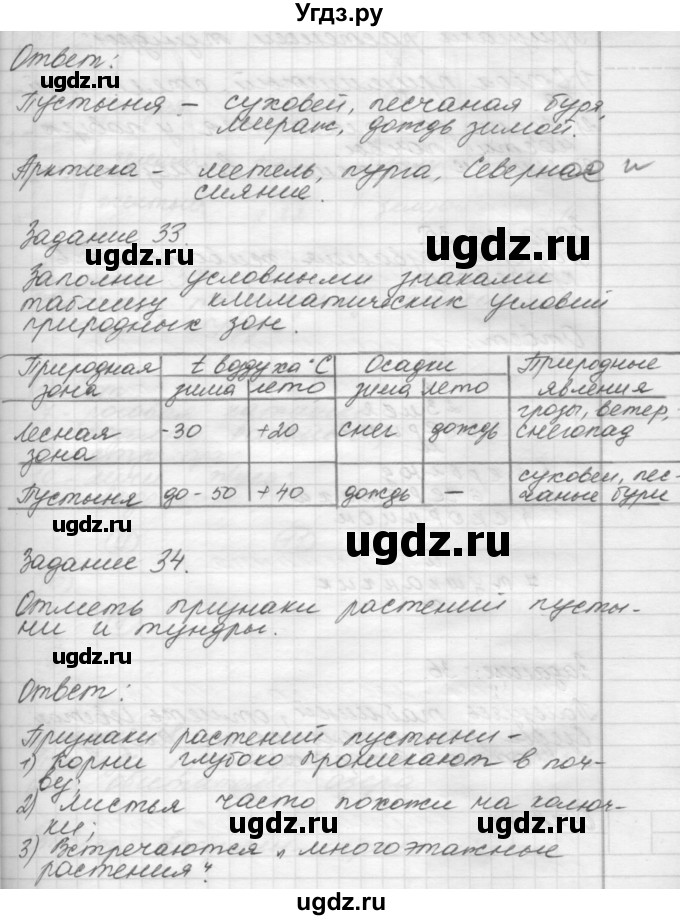 Угдз.ру
Ответ:
Пустыня – суховей, песчаная буря,
Мираж, дождь зимой.
Арктика - метель, пурга, Северное
сияние.
Задание 33.
Заполни условными знаками
таблицу климатических условий
природных зон.
Природная зона | t воздуха °С | Осадки | Природные явления
зима | лето | зима | лето
Лесная зона | -30 | +20 | снег | дождь | грозы, ветер, снегопад
Пустыня | до-50 | +40 | дождь | — | суховеи, песчаные бури
Задание 34.
Отметь признаки растений пусты-
ни и тундры.
Ответ:
Признаки растений пустыни-
1) Корни глубоко проникают в поч-
ву;
2) Листья часто похожи на колюч-
ки;
3) Встречаются „многоэтажные
растения".
ugdz.ru
ugdz.ru
ugdz.ru
ugdz.ru
ugdz.ru
ugdz.ru
ugdz.ru
ugdz.ru
ugdz.ru
ugdz.ru
ugdz.ru
ugdz.ru